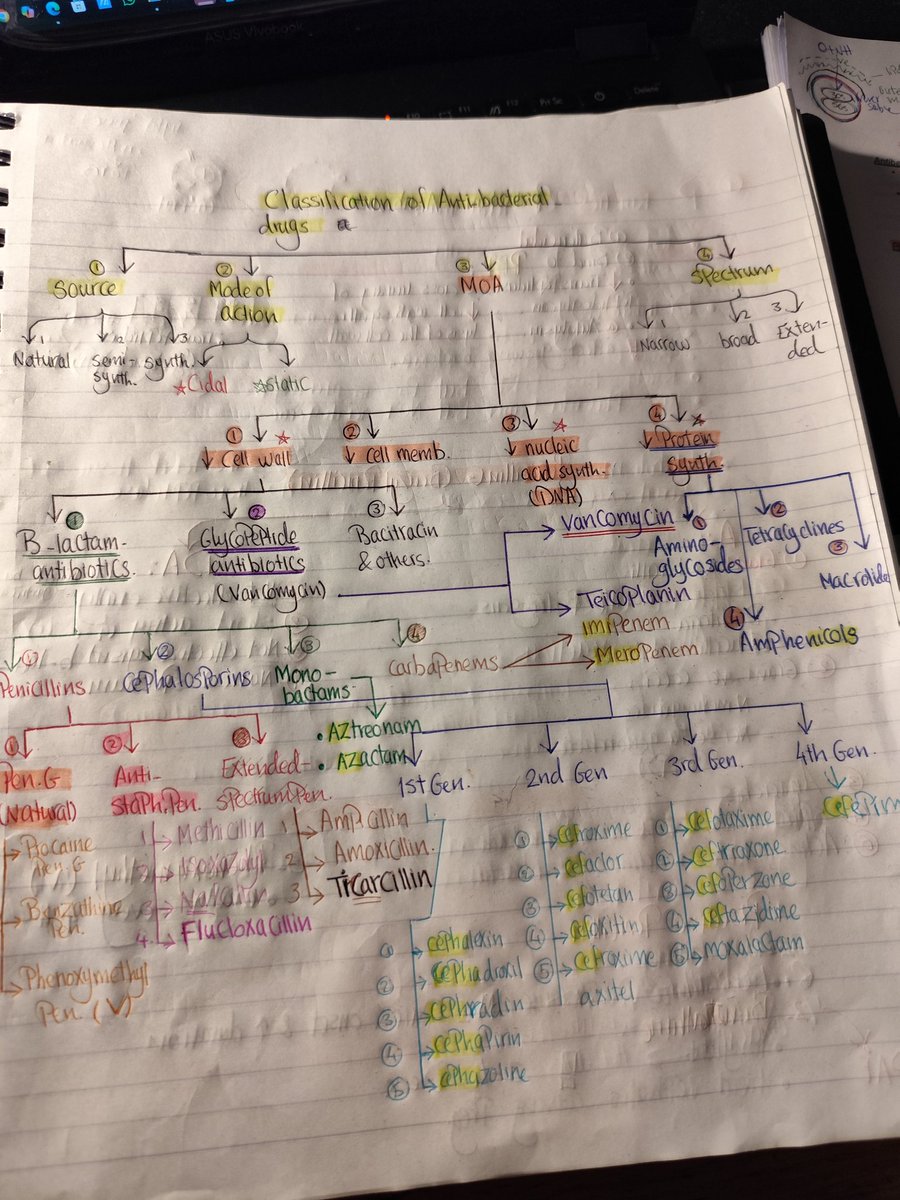 ASUS Vivobook
F11
F12
Prt Sc
Delete
Classification of Antibacterial
drugs
① Source
② Mode of
action
③ MOA
④ Spectrum
1 Natural
2 Semi-
synth.
3 synth.
☆Cidal
☆static
1 Narrow
2 broad
3 Exten-
ded
① ↓ Cell wall
② ↓ cell memb.
③ ↓ nucleic
acid synth.
(DNA)
④ ↓ Protein
synth.
① B-lactam-
antibiotics.
② Glycopeptide
antibiotics
(Vancomycin)
③ Bacitracin
& others.
Vancomycin
Teicoplanin
① Amino-
glycosides
② Tetracyclines
③ Macrolide
④ Amphenicols
① Penicillins
② Cephalosporins
③ Mono-
bactams
④ Carbapenems
Imipenem
Meropenem
• AZtreonam
• AZactam
① Pen.G
(Natural)
② Anti-
Staph.Pen.
③ Extended-
spectrum Pen.
Procaine
Pen.G
Benzathine
Pen.
Phenoxymethyl
Pen.(V)
1 Methicillin
2 Isoxazolyl
3 Nafcillin
4. Flucloxacillin
1 Ampicillin
2 Amoxicillin.
3 Ticarcillin
1st Gen.
2nd Gen
3rd Gen.
4th Gen.
① cephalexin
② cephadroxil
③ cephradin
④ cephapirin
⑤ cephazoline
① cefroxime
② cefaclor
③ cefotetan
④ cefoxitin
⑤ cefroxime
axitel
① cefotaxime
② ceftriaxone
③ cefoperzone
④ ceftazidime
⑤ moxalactam
cefepim